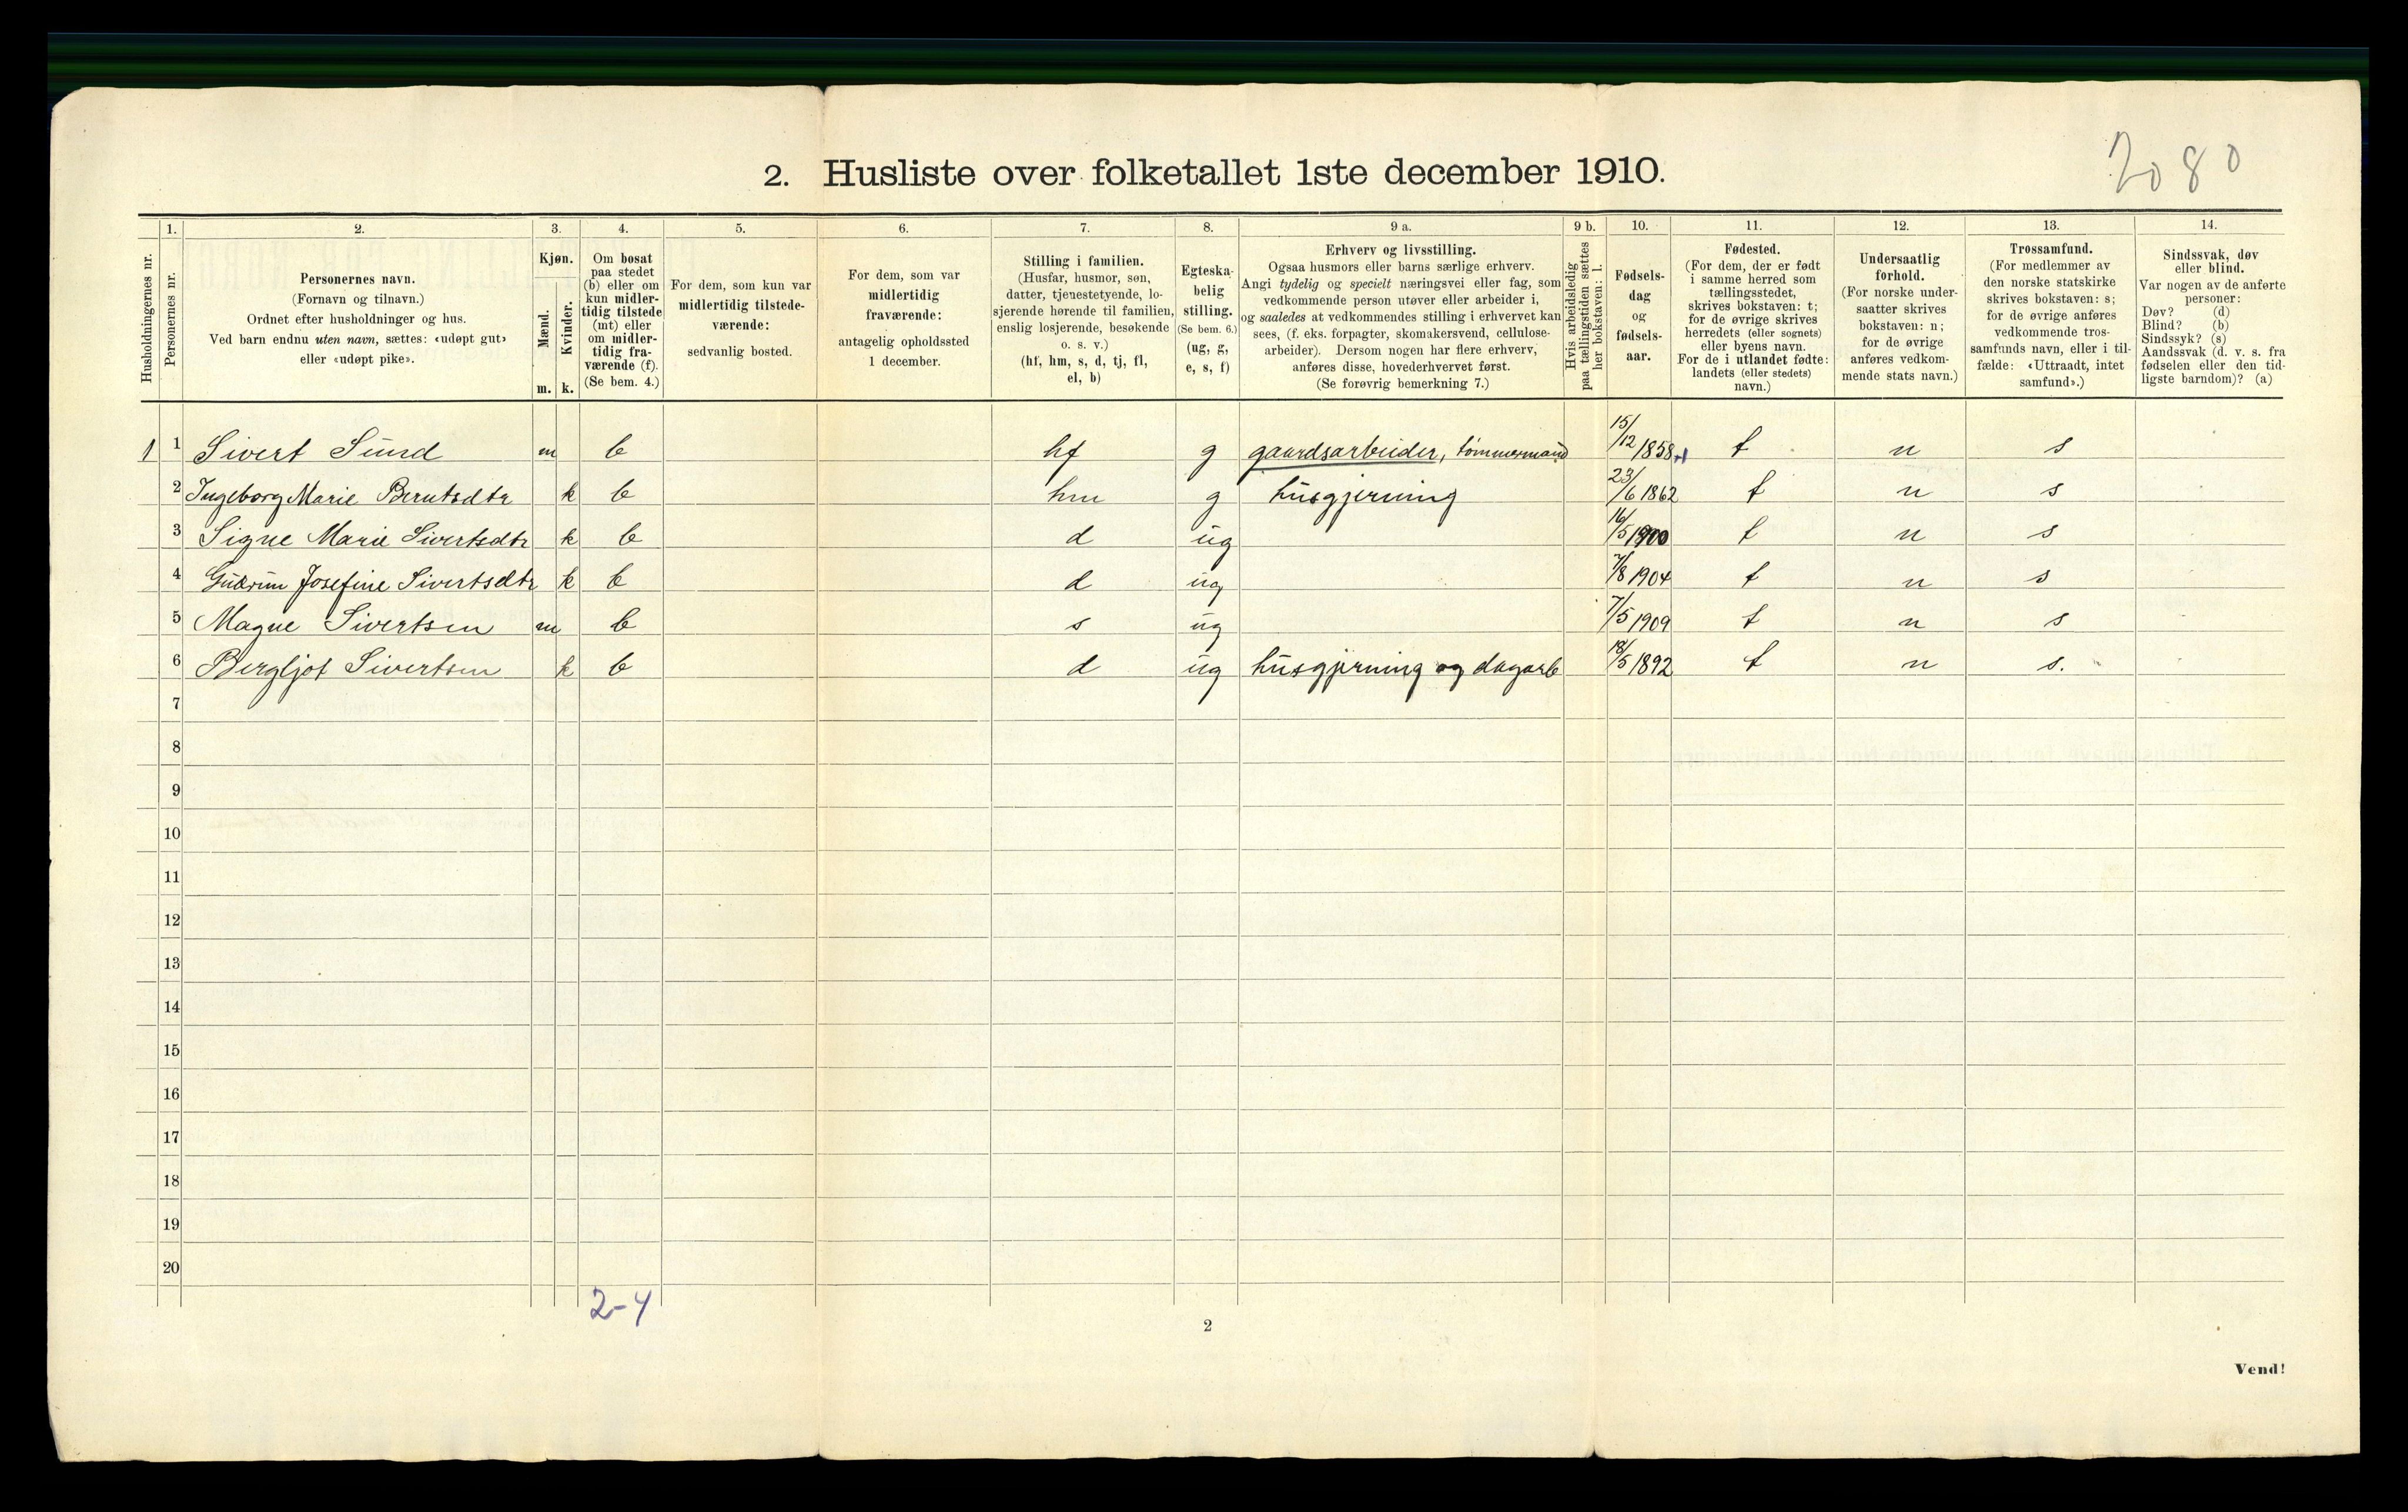 2080
2. Husliste over folketallet 1ste december 1910.
Husholdningernes nr.
1.
Personernes nr.
2.
Personernes navn.
(Fornavn og tilnavn.)
Ordnet efter husholdninger og hus.
Ved barn endnu uten navn, sættes: «udøpt gut»
eller «udøpt pike».
3.
Kjøn.
Mænd.
Kvinder.
m. k.
4.
Om bosat
paa stedet
(b) eller om
kun midler-
tidig tilstede
(mt) eller
om midler-
tidig fra-
værende (f).
(Se bem. 4.)
5.
For dem, som kun var
midlertidig tilstede-
værende:
sedvanlig bosted.
6.
For dem, som var
midlertidig
fraværende:
antagelig opholdssted
1 december.
7.
Stilling i familien.
(Husfar, husmor, søn,
datter, tjenestetyende, lo-
sjerende hørende til familien,
enslig losjerende, besøkende
o. s. v.)
(hf, hm, s, d, tj, fl,
el, b)
8.
Egteska-
belig
stilling.
(Se bem. 6.)
(ug, g,
e, s, f)
9 a.
Erhverv og livsstilling.
Ogsaa husmors eller barns særlige erhverv.
Angi tydelig og specielt næringsvei eller fag, som
vedkommende person utøver eller arbeider i,
og saaledes at vedkommendes stilling i erhvervet kan
sees, (f. eks. forpagter, skomakersvend, cellulose-
arbeider). Dersom nogen har flere erhverv,
anføres disse, hovederhvervet først.
(Se forøvrig bemerkning 7.)
9 b.
Hvis arbeidsledig
paa tællingstiden sættes
her bokstaven: l.
10.
Fødsels-
dag
og
fødsels-
aar.
11.
Fødested.
(For dem, der er født
i samme herred som
tællingsstedet,
skrives bokstaven: t;
for de øvrige skrives
herredets (eller sognets)
eller byens navn.
For de i utlandet fødte:
landets (eller stedets)
navn.)
12.
Undersaatlig
forhold.
(For norske under-
saatter skrives
bokstaven: n;
for de øvrige
anføres vedkom-
mende stats navn.)
13.
Trossamfund.
(For medlemmer av
den norske statskirke
skrives bokstaven: s;
for de øvrige anføres
vedkommende tros-
samfunds navn, eller i til-
fælde: «Uttraadt, intet
samfund».)
14.
Sindssvak, døv
eller blind.
Var nogen av de anførte
personer:
Døv? (d)
Blind? (b)
Sindssyk? (s)
Aandssvak (d. v. s. fra
fødselen eller den tid-
ligste barndom)? (a)
1 1 Sivert Sund m b hf g gaardsarbeider, tømmermand 15/12 1858 t n s
2 Ingeborg Marie Berntsdtr k b hm g husgjerning 23/6 1862 t n s
3 Signe Marie Sivertsdtr k b d ug 16/5 1900 t n s
4 Gudrun Josefine Sivertsdtr k b d ug 7/8 1904 t n s
5 Magne Sivertsen m b s ug 7/5 1909 t n s
6 Bergljot Sivertsen k b d ug husgjerning og dagarb 18/5 1892 t n s.
7
8
9
10
11
12
13
14
15
16
17
18
19
20
2-4
2
Vend!